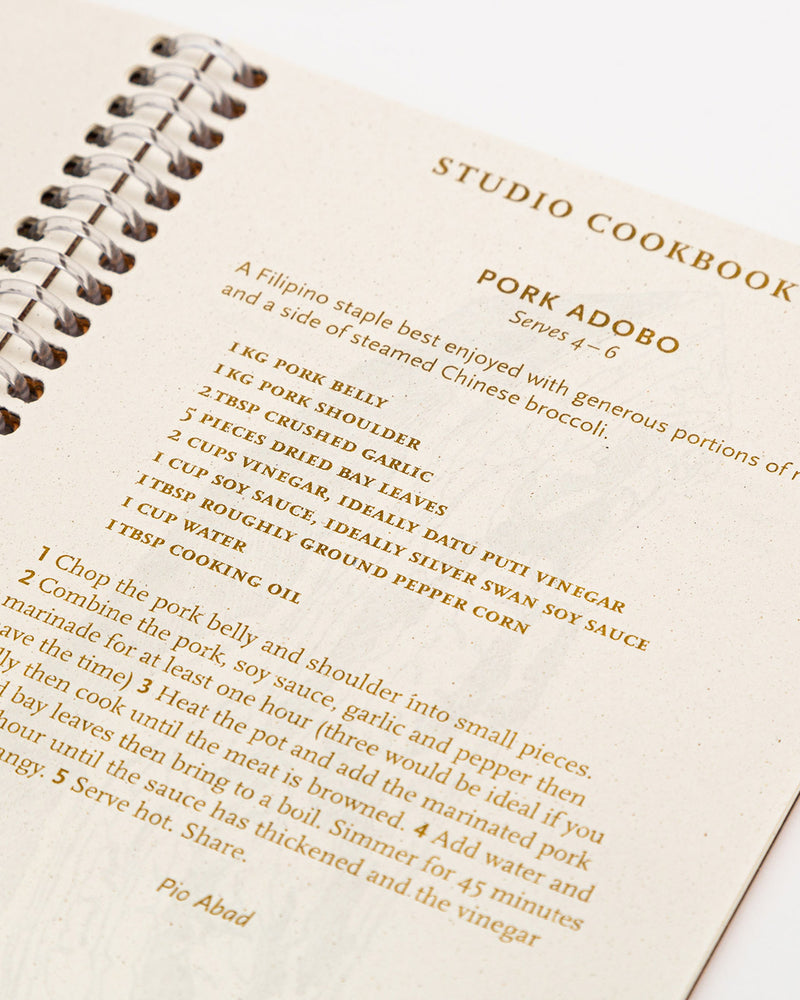 STUDIO COOKBOOK
PORK ADOBO
Serves 4–6
A Filipino staple best enjoyed with generous portions of
and a side of steamed Chinese broccoli.
1 KG PORK BELLY
1 KG PORK SHOULDER
2 TBSP CRUSHED GARLIC
5 PIECES DRIED BAY LEAVES
2 CUPS VINEGAR, IDEALLY DATU PUTI VINEGAR
1 CUP SOY SAUCE, IDEALLY SILVER SWAN SOY SAUCE
1 TBSP ROUGHLY GROUND PEPPER CORN
1 CUP WATER
1 TBSP COOKING OIL
1 Chop the pork belly and shoulder into small pieces.
2 Combine the pork, soy sauce, garlic and pepper then
marinade for at least one hour (three would be ideal if you
the time) 3 Heat the pot and add the marinated pork
then cook until the meat is browned. 4 Add water and
bay leaves then bring to a boil. Simmer for 45 minutes
hour until the sauce has thickened and the vinegar
5 Serve hot. Share.
Pio Abad